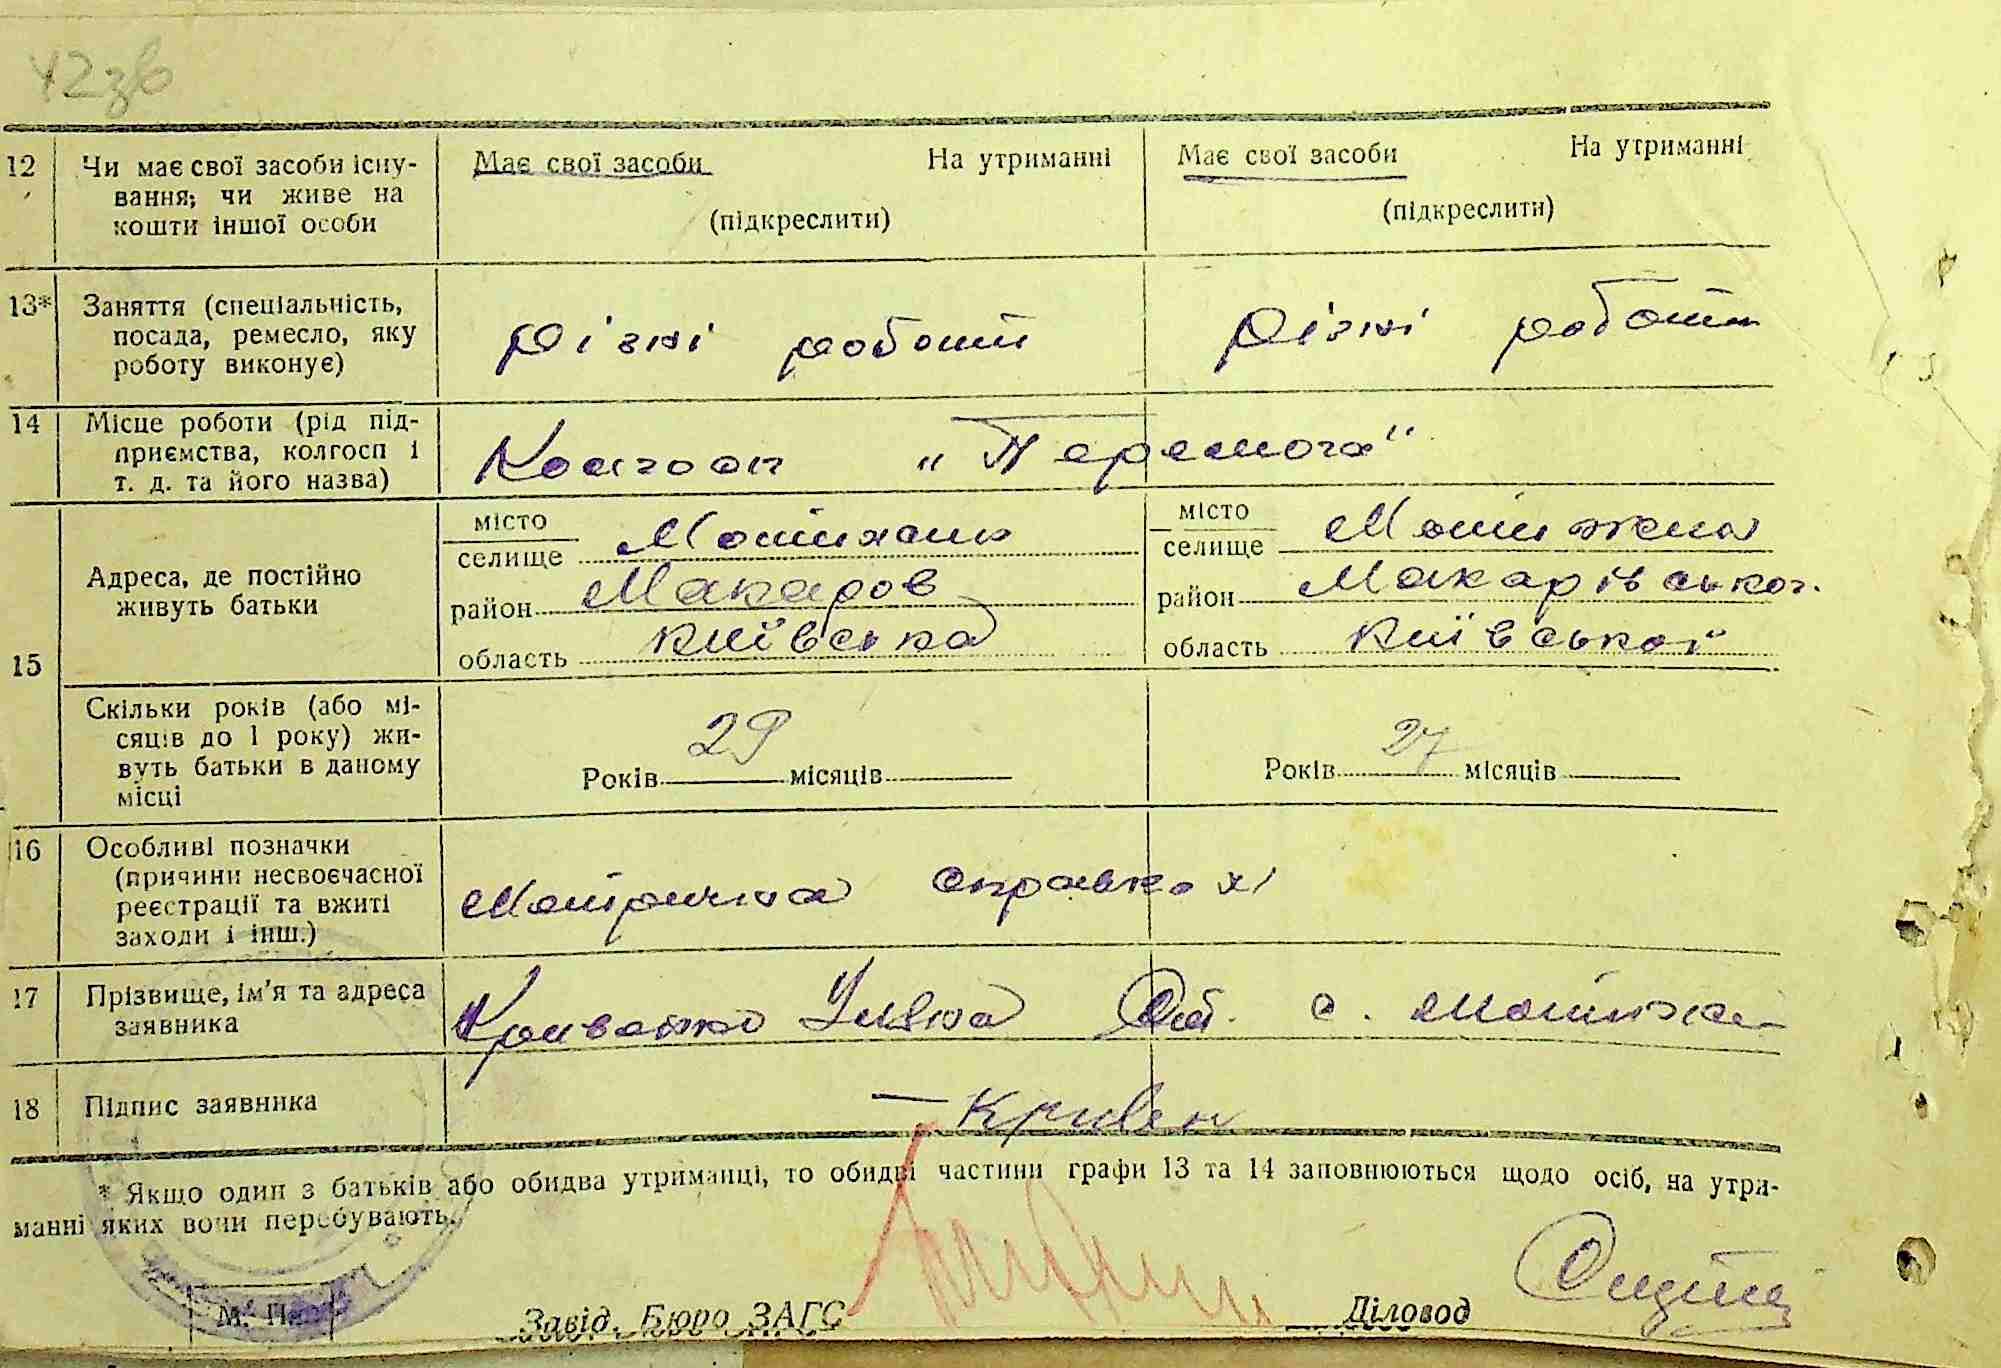 42зв
12 Чи має свої засоби існу- Має свої засоби На утриманні Має свої засоби На утриманні
вання; чи живе на
кошти іншої особи (підкреслити) (підкреслити)
13* Заняття (спеціальність,
посада, ремесло, яку різні роботи різні роботи
роботу виконує)
14 Місце роботи (рід під-
приємства, колгосп і Колгосп „Перемога"
т. д. та його назва)
місто місто
селище Мотижин селище Мотижин
Адреса, де постійно
живуть батьки район Макаров район Макарівськог.
15 область Київська область Київської
Скільки років (або мі-
сяців до 1 року) жи- 29 27
вуть батьки в даному Років місяців Років місяців
місці
16 Особливі позначки
(причини несвоєчасної
реєстрації та вжиті справка
заходи і інш.)
17 Прізвище, ім'я та адреса
заявника Уляна с.
18 Підпис заявника Кривен
* Якщо один з батьків або обидва утриманці, то обидві частини графи 13 та 14 заповнюються щодо осіб, на утри-
манні яких вони перебувають.
М. П. Завід. Бюро ЗАГС Діловод